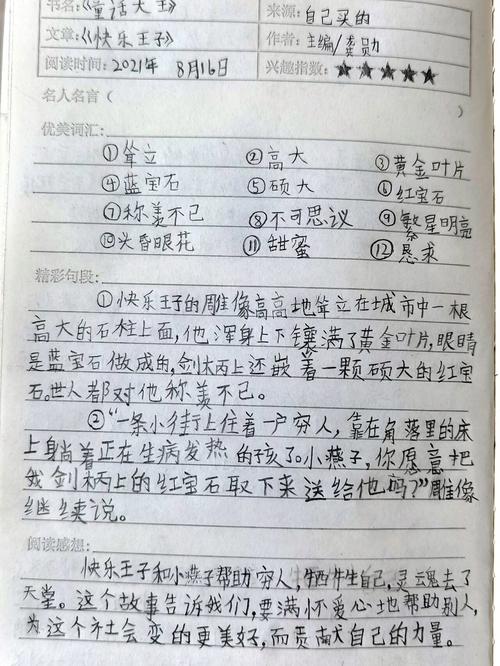 书名:《童话大王》 来源:自己买的
文章:《快乐王子》 作者:主编/龚勋
阅读时间:2021年 8月16日 兴趣指数:★★★★★
名人名言（ ）
优美词汇:
①耸立 ②高大 ③黄金叶片
④蓝宝石 ⑤硕大 ⑥红宝石
⑦称羡不已 ⑧不可思议 ⑨繁星明亮
⑩头昏眼花 ⑪甜蜜 ⑫恳求
精彩句段:
①快乐王子的雕像高高地耸立在城市中一根
高大的石柱上面,他浑身上下镶满了黄金叶片,眼睛
是蓝宝石做成的,剑柄上还嵌着一颗硕大的红宝
石。世人都对他称羡不已。
②“一条小街上住着一户穷人,靠在角落里的床
上躺着正在生病发热的孩子。小燕子,你愿意把
我剑柄上的红宝石取下来送给他吗?”雕像
继续说。
阅读感想:
快乐王子和小燕子帮助穷人,牺牲自己,灵魂去了
天堂。这个故事告诉我们,要满怀爱心地帮助别人,
为这个社会变的更美好,而贡献自己的力量。